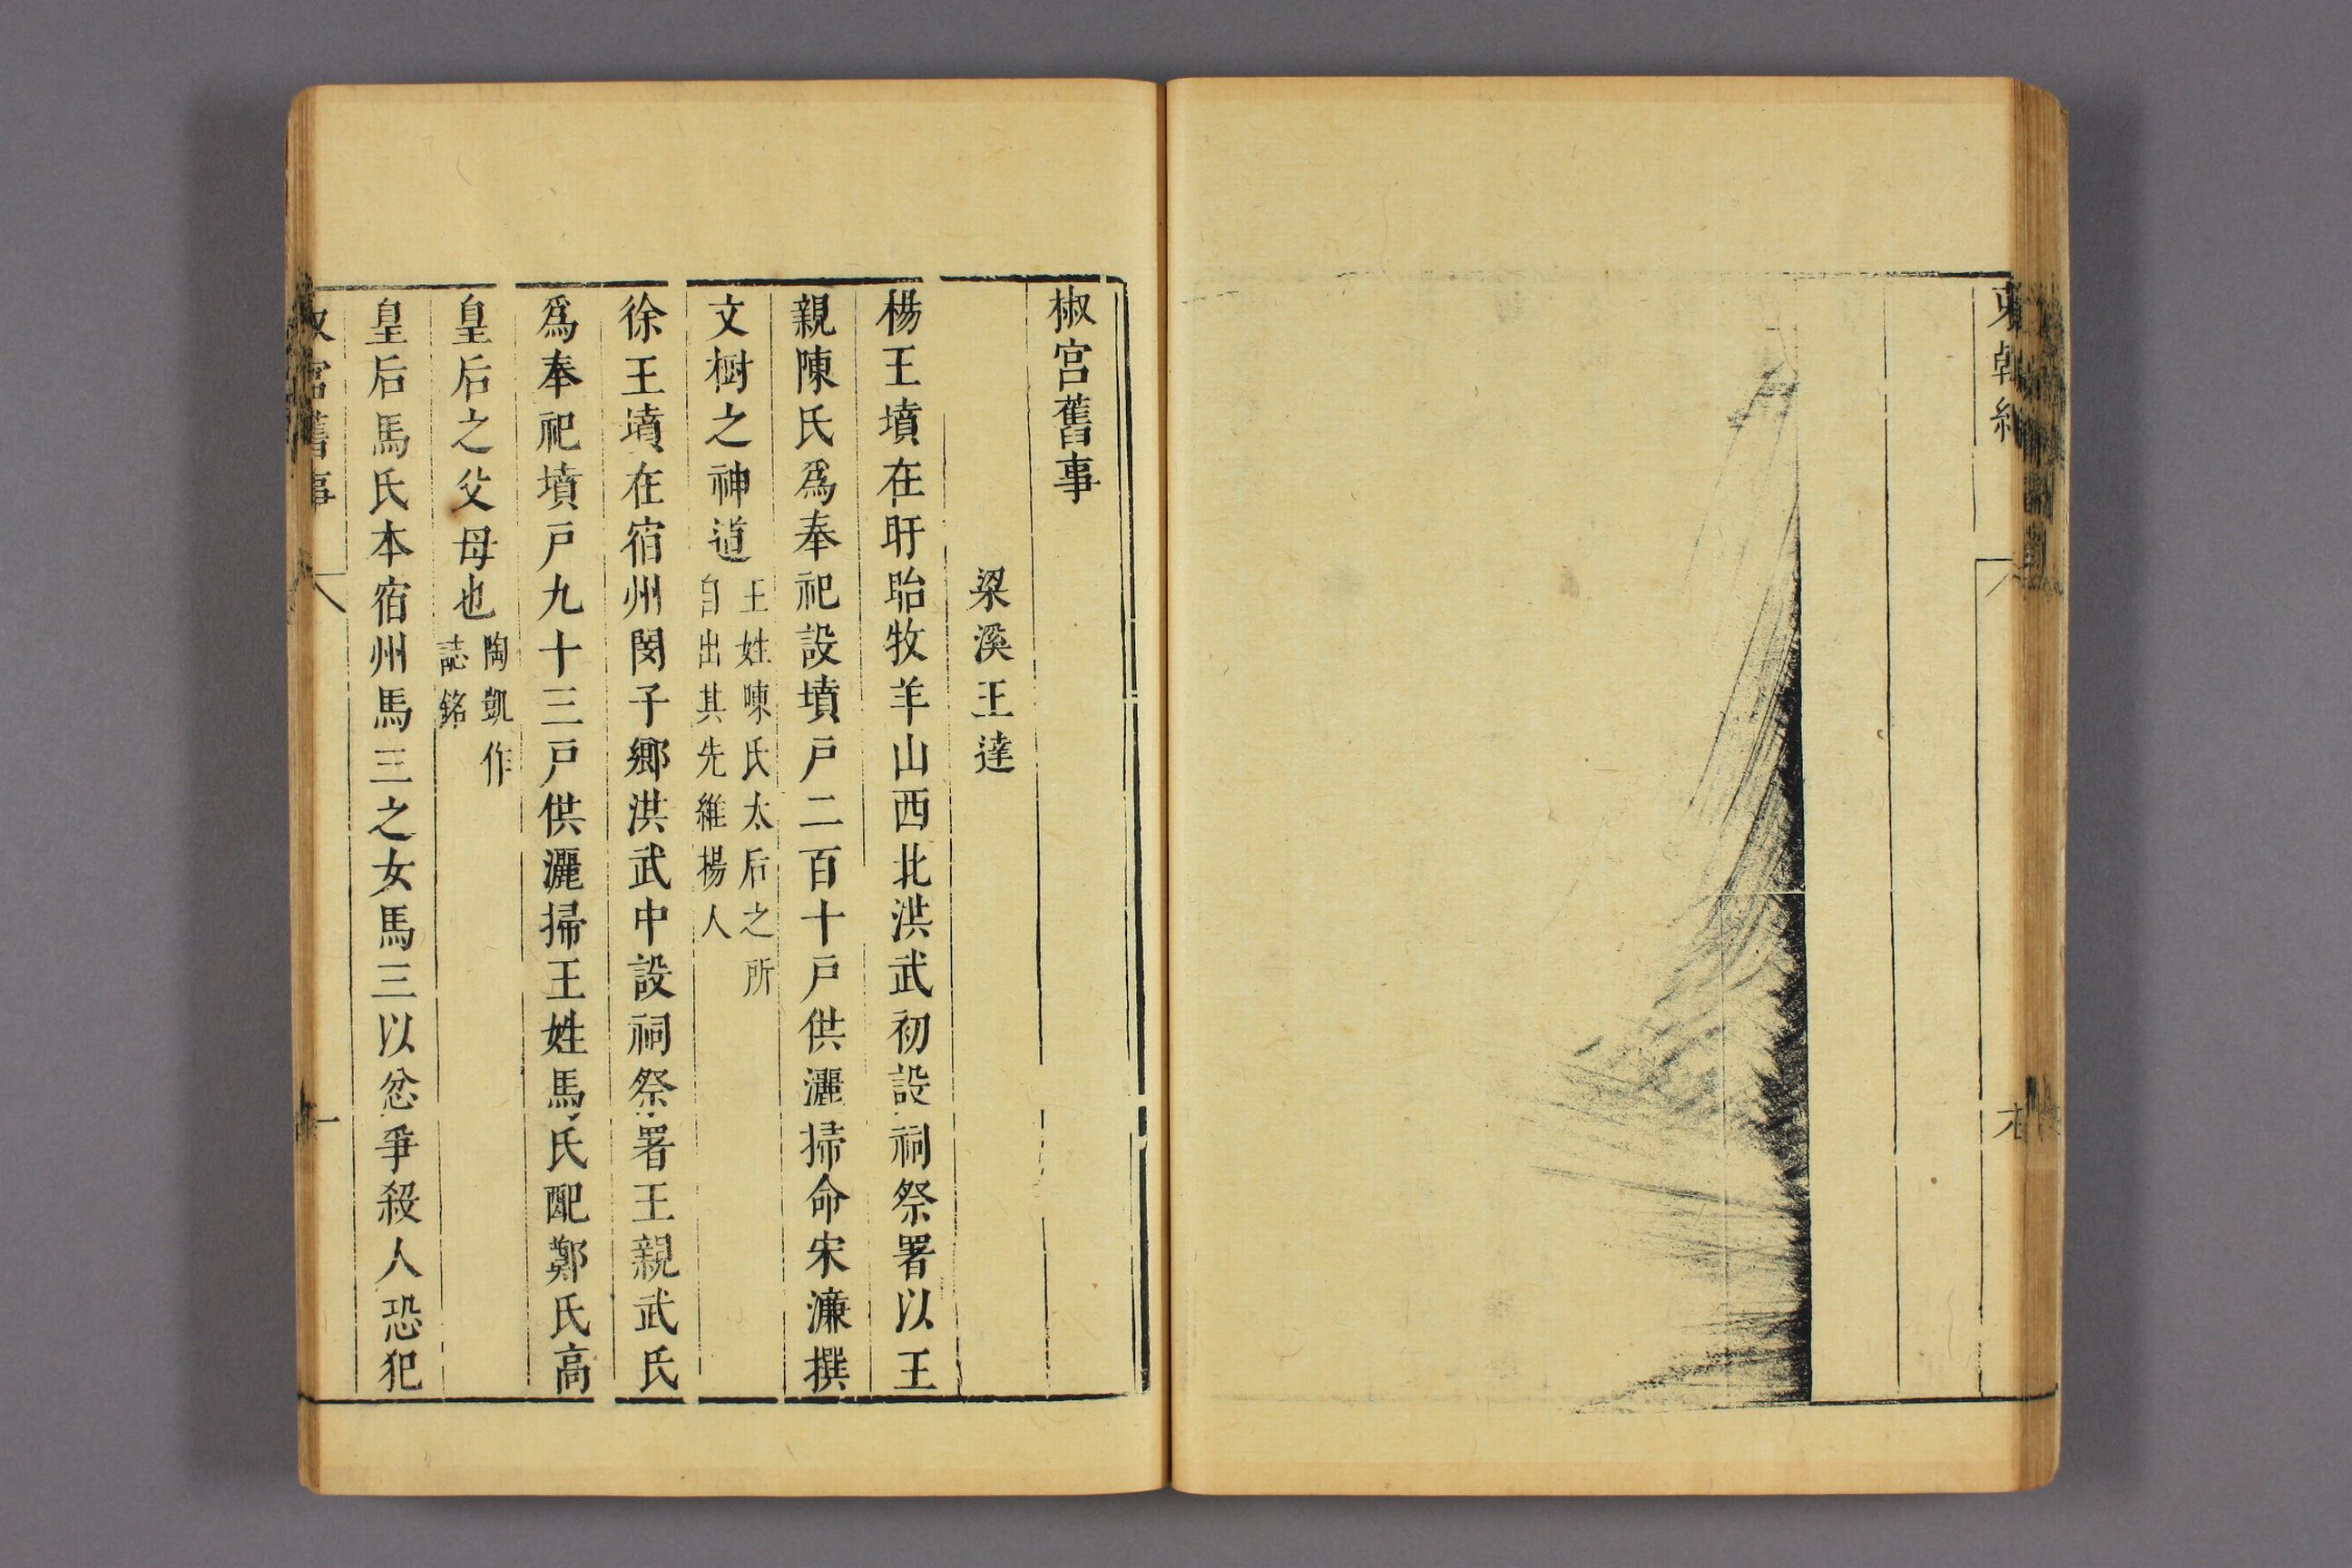 椒宮舊事
梁溪王達
楊王墳在盱眙牧羊山西北洪武初設祠祭署以王
親陳氏爲奉祀設墳戸二百十戸供灑掃命宋濂撰
文樹之神道
王姓陳氏太后之所
自出其先維楊人
徐王墳在宿州閔子鄉洪武中設祠祭署王親武氏
爲奉祀墳戸九十三戸供灑掃王姓馬氏配鄭氏高
皇后之父母也
陶凱作
誌銘
皇后馬氏本宿州馬三之女馬三以忿爭殺人恐犯
宮舊事
一